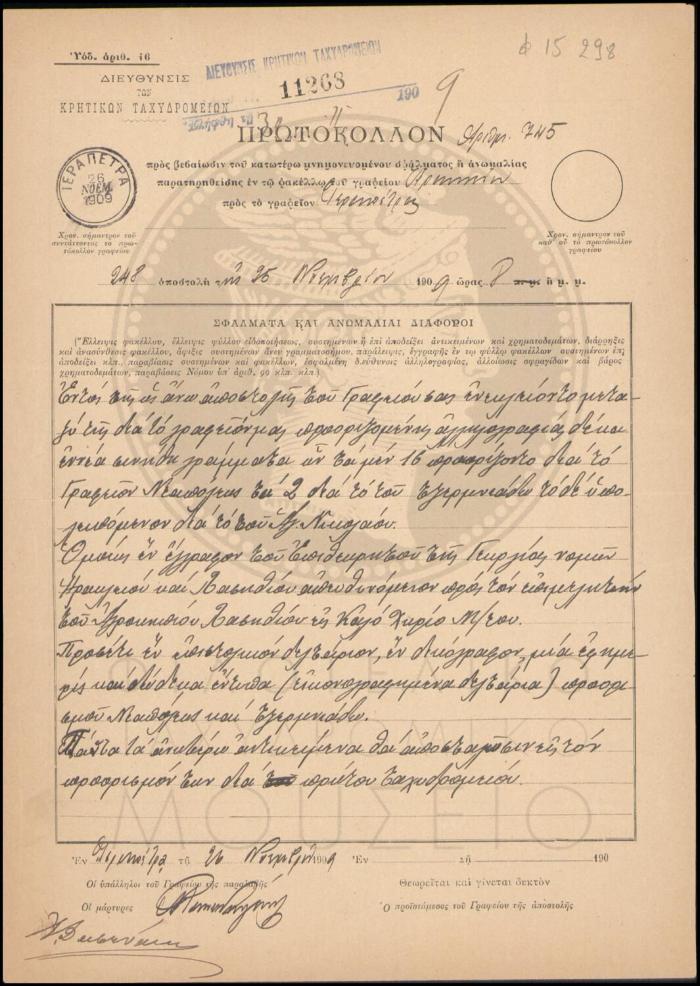 Ὑπόδ. ἀριθ. 16
ΔΙΕΥΘΥΝΣΙΣ
ΤΩΝ
ΚΡΗΤΙΚΩΝ ΤΑΧΥΔΡΟΜΕΙΩΝ
ΔΙΕΥΘΥΝΣΙΣ ΚΡΗΤΙΚΩΝ ΤΑΧΥΔΡΟΜΕΙΩΝ
11268
190 9
15 298
ΠΡΩΤΟΚΟΛΛΟΝ Ἀριθμ. 745
πρὸς βεβαίωσιν τοῦ κατωτέρω μνημονευομένου σφάλματος ἢ ἀνωμαλίας
παρατηρηθείσης ἐν τῷ φακέλλῳ τοῦ γραφείου
πρὸς τὸ γραφεῖον Ἱεραπέτρας
ΙΕΡΑΠΕΤΡΑ
26
ΝΟΕΜ
1909
Χρον. σήμαντρον τοῦ
συντάττοντος τὸ πρω-
τόκολλον γραφείου
Χρον. σήμαντρον τοῦ
καθ' οὗ τὸ πρωτόκολλον
γραφείου
248 ἀποστολὴ τῆς 25 Νοεμβρίου 1909 ὥρας 8 π. μ. ἢ μ. μ.
ΣΦΑΛΜΑΤΑ ΚΑΙ ΑΝΩΜΑΛΙΑΙ ΔΙΑΦΟΡΟΙ
(Ἔλλειψις φακέλλου, ἔλλειψις φύλλου εἰδοποιήσεως, συστημένων ἢ ἐπὶ ἀποδείξει ἀντικειμένων καὶ χρηματοδεμάτων, διάρρηξις
καὶ ἀνασύνθεσις φακέλλου, ἄφιξις συστημένων ἄνευ γραμματοσήμου, παράλειψις, ἐγγραφῆς ἐν τῷ φύλλῳ φακέλλων συστημένων ἐπὶ
ἀποδείξει κλπ., παραβίασις συστημένων καὶ φακέλλων, ἐσφαλμένη διεύθυνσις ἀλληλογραφίας, ἀλλοίωσις σφραγίδων καὶ βάρος
χρηματοδέματος, παραβάσεις Νόμου ὑπ' ἀριθ. 99 κλπ. κλπ.)
Ἐντὸς τῆς ὡς ἄνω ἀποστολῆς τοῦ Γραφείου σας ἐνεκλείοντο μετα-
ξὺ τῆς διὰ τὸ γραφεῖον μας προοριζομένης ἀλληλογραφίας δέκα
ἐννέα συνήθη γράμματα ὧν τὰ μὲν 16 προωρίζοντο διὰ τὸ
Γραφεῖον Νεαπόλεως τὰ 2 διὰ τὸ τοῦ Τζερμιάδου τὸ δὲ ὑπο-
λειπόμενον διὰ τὸ τοῦ Ἁγ. Νικολάου.
Ὁμοίως ἓν ἔγγραφον τοῦ Ἐπιθεωρητοῦ τῆς Γεωργίας νομῶν
Ἡρακλείου καὶ Λασηθίου ἀπευθυνόμενον πρὸς τὸν ἐπιμελητὴν
τοῦ Ἀγροκηπίου Λασηθίου εἰς Καλὸ Χωριὸ
Προσέτι ἓν ἐπιστολικὸν δελτάριον, ἓν δικόγραφον, μία ἐφημε-
ρὶς καὶ δώδεκα ἔντυπα (εἰκονογραφημένα δελτάρια) προορι-
σμοῦ Νεαπόλεως καὶ Τζερμιάδου.
Πάντα τὰ ἀνωτέρω ἀντικείμενα θὰ ἀποσταλῶσιν εἰς τὸν
προορισμόν των διὰ πρώτου ταχυδρομείου.
Ἐν Ἱεραπέτρᾳ τῇ 26 Νοεμβρίου 1909 Ἐν τῇ 190
Οἱ ὑπάλληλοι τοῦ Γραφείου τῆς παραλαβῆς
Θεωρεῖται καὶ γίνεται δεκτὸν
Οἱ μάρτυρες
Ὁ προϊστάμενος τοῦ Γραφείου τῆς ἀποστολῆς
ΜΟΥΣΕΙΟ